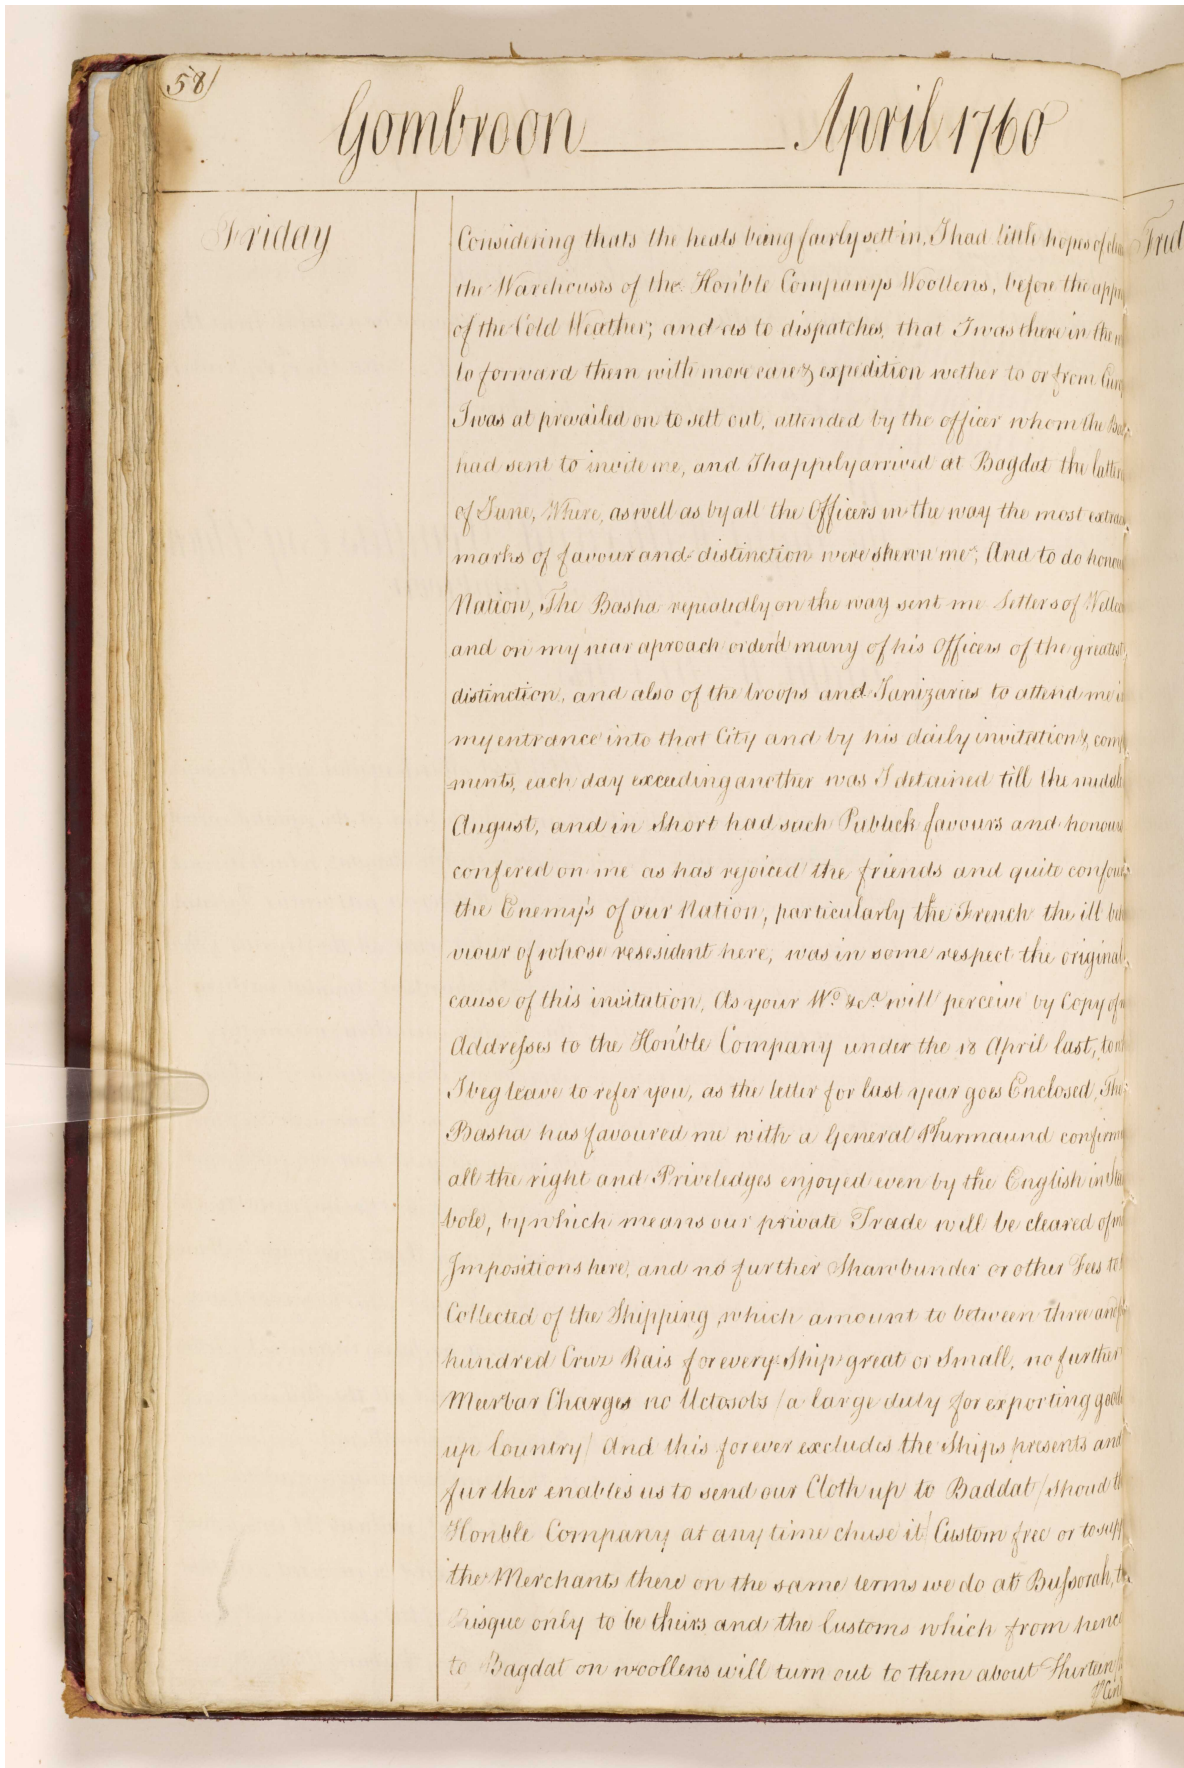 58
Gombroon April 1760
Friday
Considering thats the heats being fairly sett in, I had little hopes of
the Warehouses of the Honble Companys Woollens, before the
of the Cold Weather; and as to dispatches, that I was there in the
to forward them with more care & expedition wether to or from
I was at prevailed on to sett out, attended by the officer whom the
had sent to invite me, and I happely arrived at Bagdat the
of June, Where, as well as by all the Officers in the way the most
marks of favour and distinction were shewn me; And to do
Nation, The Basha repeatedly on the way sent me Letters of
and on my near aproach order'd many of his Officers of the greatest
distinction, and also of the troops and Janizaries to attend me
my entrance into that City and by his daily invitation &
ments, each day exceeding another was I detained till the
August, and in Short had such Publick favours and
confered on me as has rejoiced the friends and quite
the Enemy's of our Nation, particularly the French the ill
viour of whose resesident here, was in some respect the original
cause of this invitation, As your Wo. &ca. will perceive by Copy of
Addresses to the Honble Company under the 18 April last,
I beg leave to refer you, as the letter for last year goes Enclosed, The
Basha has favoured me with a General Phirmaund
all the right and Priveledges enjoyed even by the English in
bole, by which means our private Trade will be cleared of
Impositions here, and no further Shawbunder or other Fees
Collected of the Shipping which amount to between three
hundred Cruz Rais for every Ship great or Small, no further
Meerbar Charges no Uctosobs (a large duty for exporting
up Country) And this forever excludes the Ships presents and
further enables us to send our Cloth up to Baddat (shoud
Honble Company at any time chuse it) Custom free or to
the Merchants there on the same terms we do at Bussorah,
risque only to be theirs and the Customs which from
to Bagdat on woollens will turn out to them about Thirteen